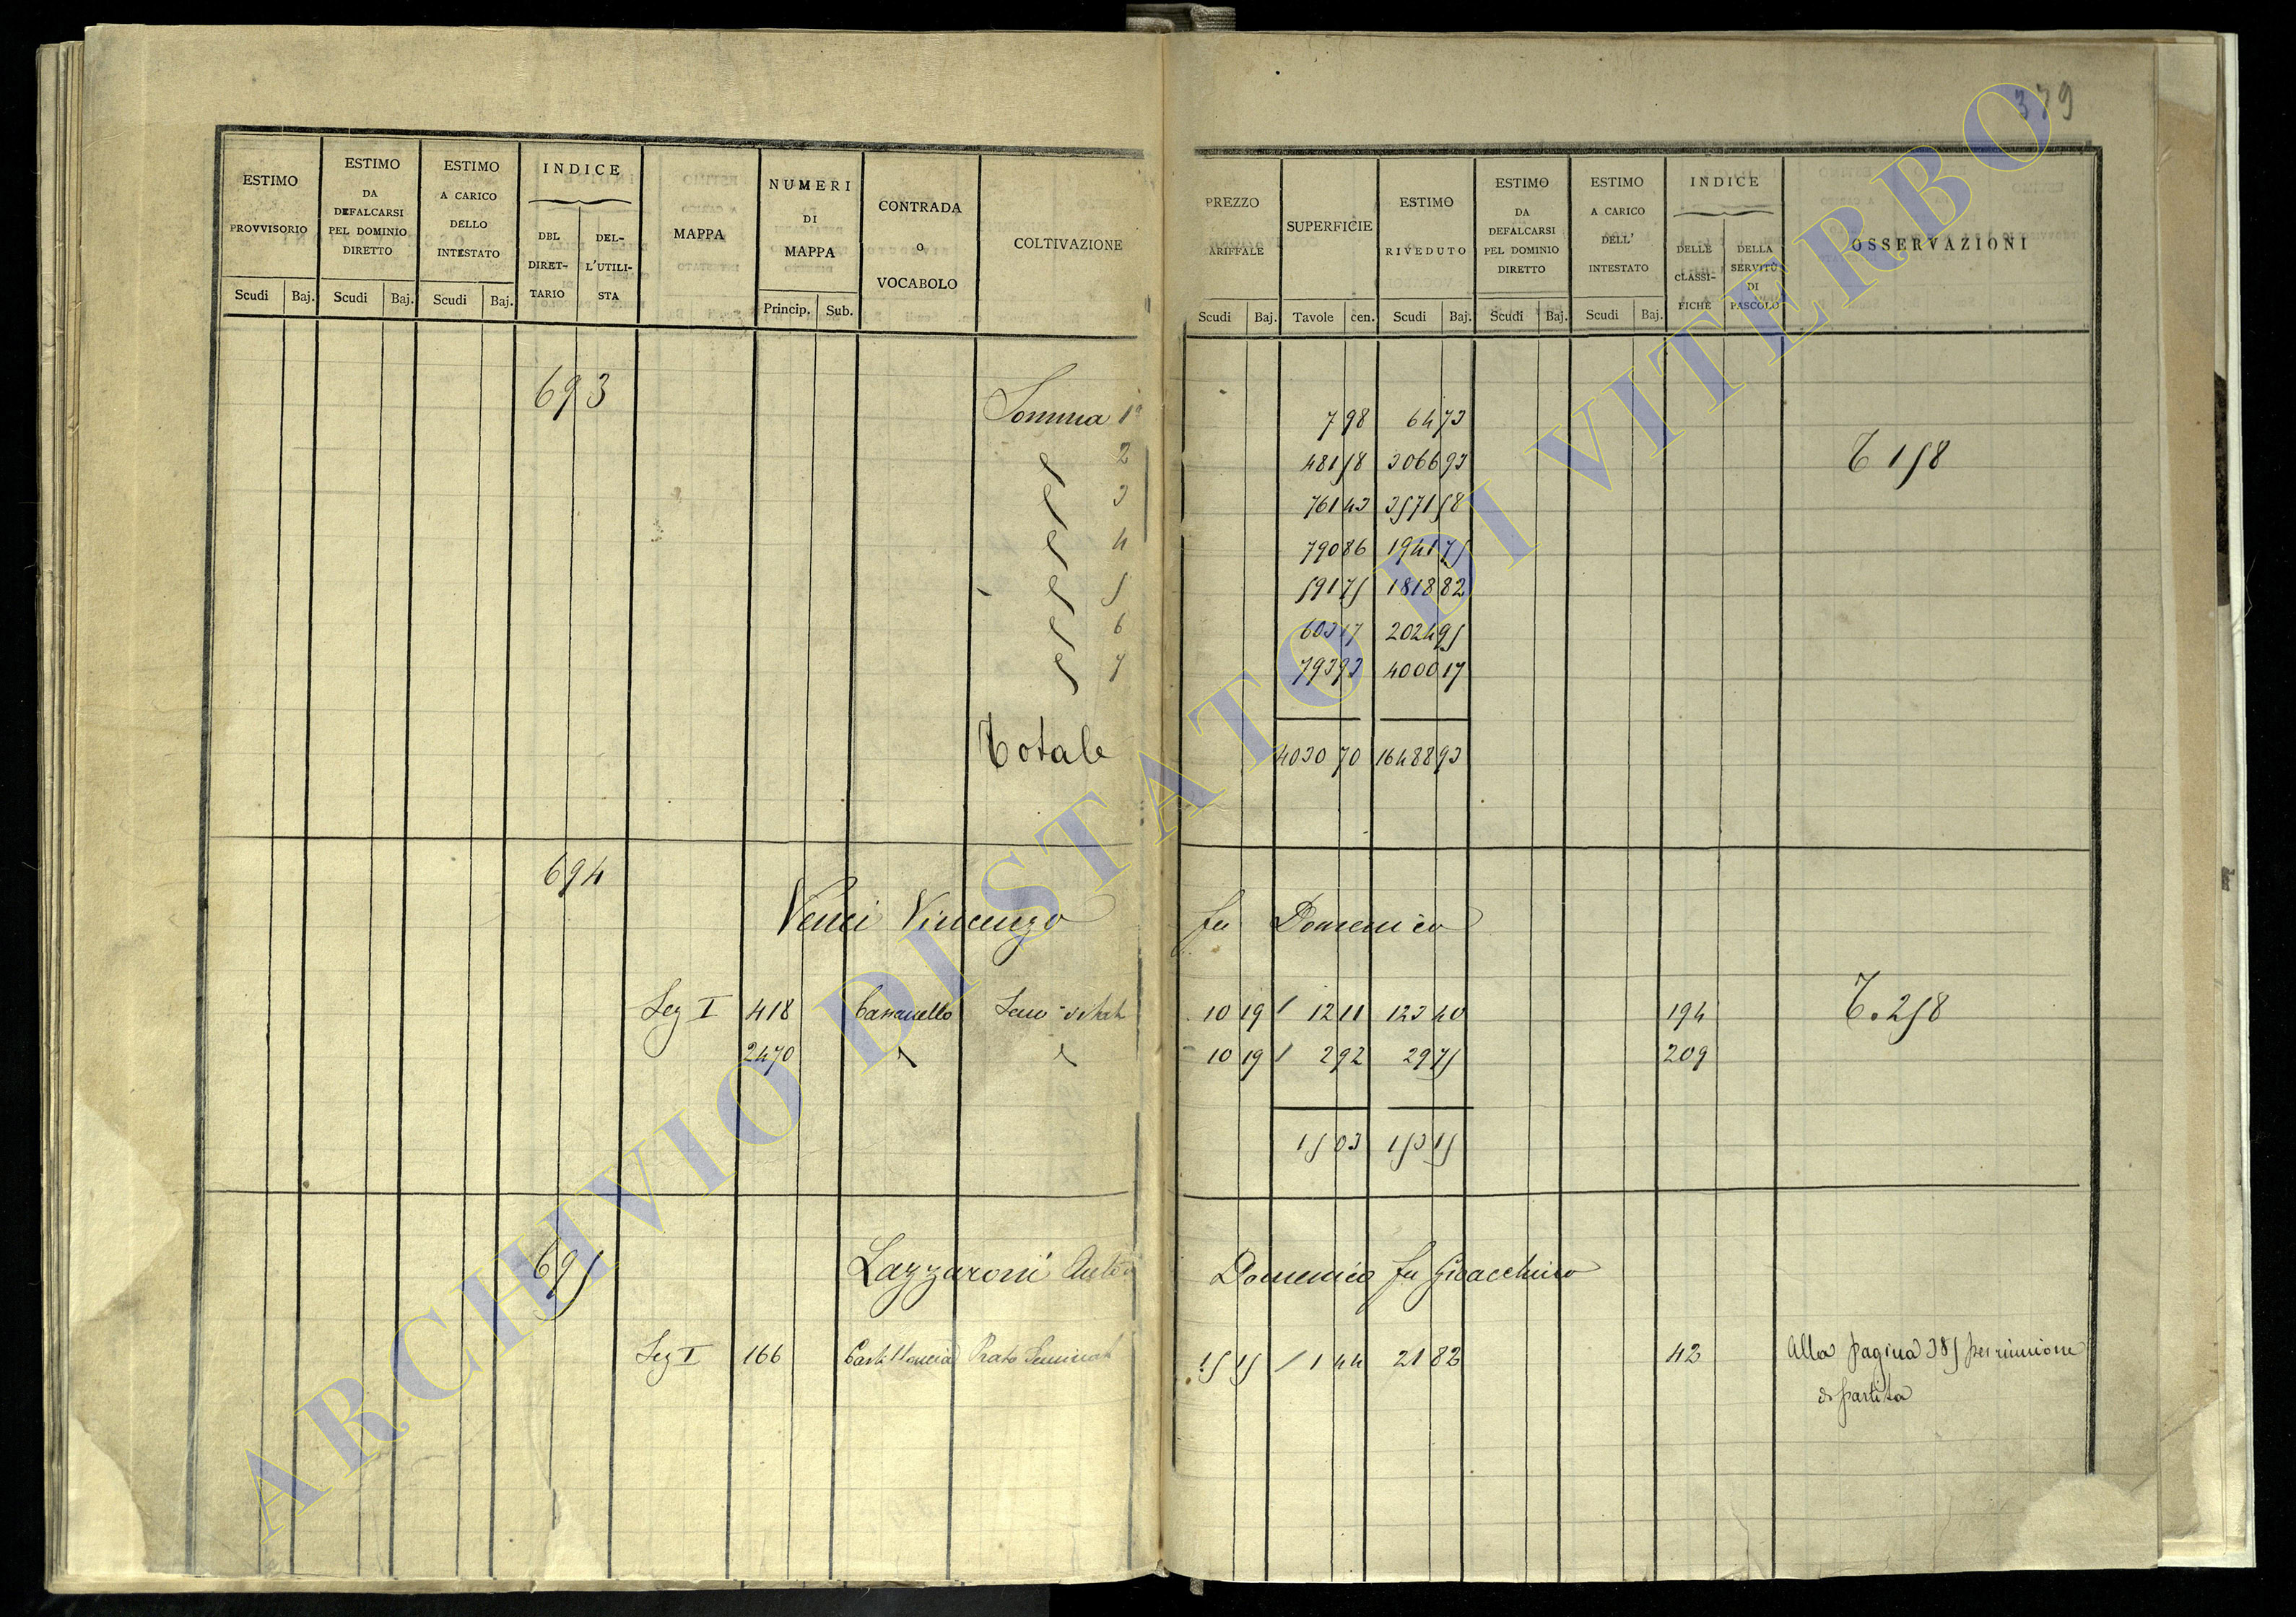 379
ESTIMO PROVVISORIO
ESTIMO DA DEFALCARSI PEL DOMINIO DIRETTO
ESTIMO A CARICO DELLO INTESTATO
INDICE
DEL DIRET-TARIO
DEL-L'UTILI-STA
MAPPA
NUMERI DI MAPPA
CONTRADA O VOCABOLO
COLTIVAZIONE
PREZZO ARIFFALE
SUPERFICIE
ESTIMO RIVEDUTO
ESTIMO DA DEFALCARSI PEL DOMINIO DIRETTO
ESTIMO A CARICO DELL' INTESTATO
INDICE
DELLE CLASSI-FICHE
DELLA SERVITÙ DI PASCOLO
OSSERVAZIONI
Scudi Baj. Scudi Baj. Scudi Baj. Princip. Sub. Scudi Baj. Tavole cen. Scudi Baj. Scudi Baj. Scudi Baj.
693 Somma 1ª 7 98 64 73
2 481 58 3066 93 T 158
3 761 43 3571 58
4 790 86 1941 75
5 591 75 1818 82
6 603 17 2024 95
7 793 93 4000 17
Totale 4030 70 16488 93
694
Venci Vincenzo fu Domenico
Sez I 418 Cassanello 10 19 12 11 123 40 194 T. 258
2470 10 19 2 92 29 75 209
15 03 153 15
695 Lazzaroni Domenico fu Gioacchino
Sez I 166 Prato Seminat 15 15 1 44 21 82 42 Alla pagina 385 per riunione
di partita
ARCHIVIO DI STATO DI VITERBO